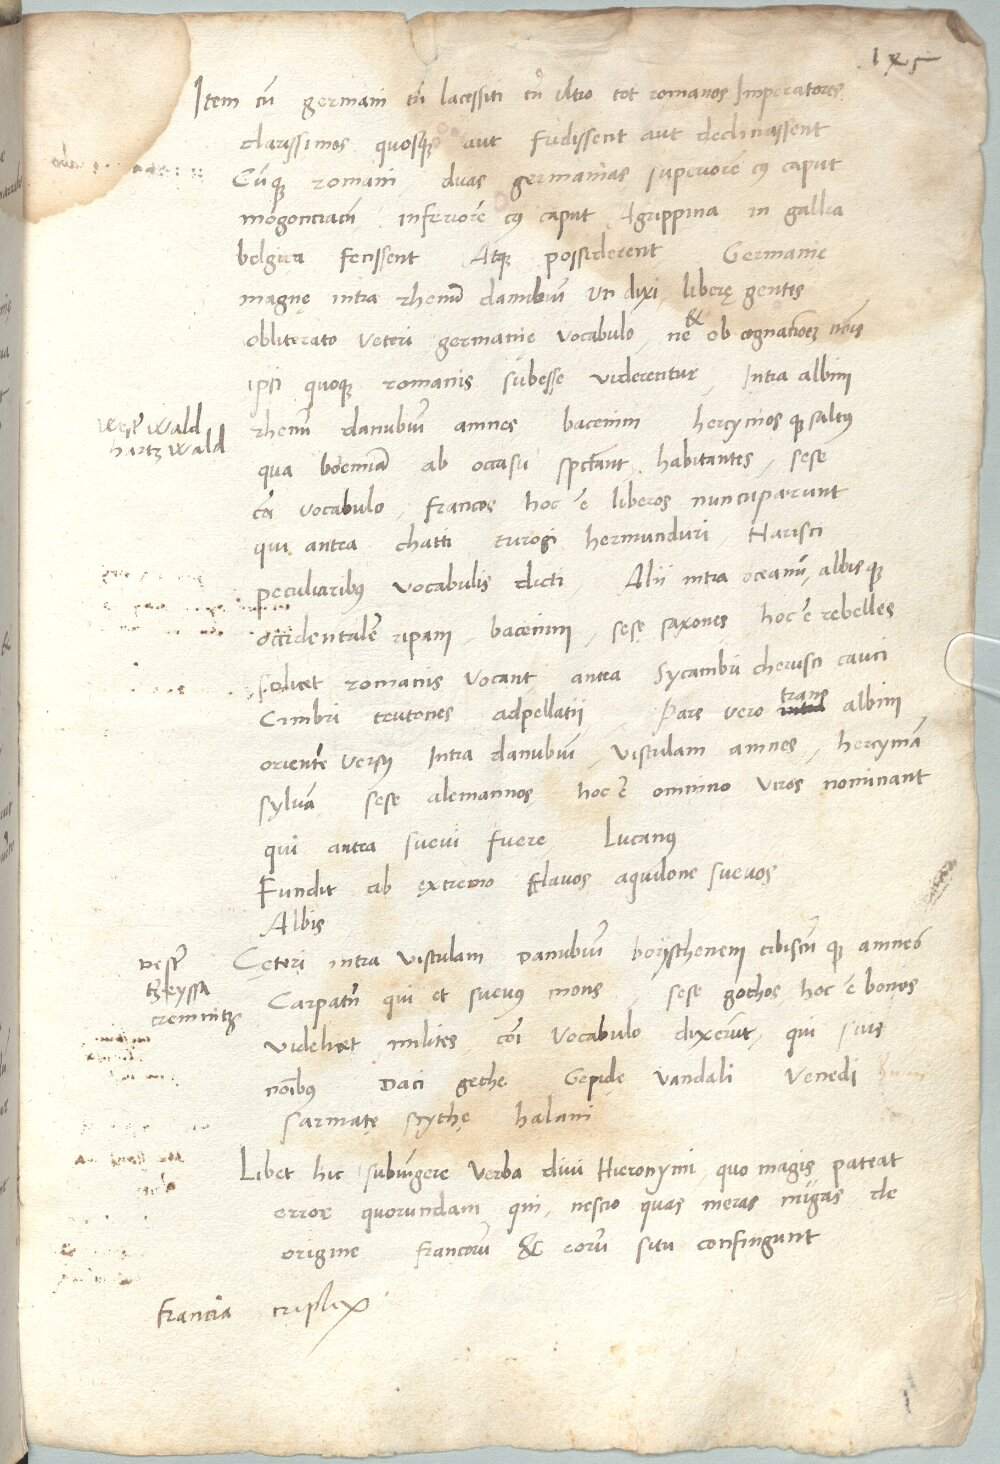 1x5
Item cū germani tū lacessiti tū ultro tot romanos Imperatores
clarissimos quosqꝫ aut fudissent aut declinassent
Cūqꝫ romani duas germanias superiorē cꝰ caput
mogonciacū inferiorē cꝰ caput Agrippina in gallia
belgica fecissent Atqꝫ possiderent Germanie
magnę intra rhenū danubiū uti dixi, liberę gentes
obliterato veteri germanie vocabulo, ne & ob cognatiōeꝫ nōis
ipsi quoqꝫ romanis subesse viderentur, Intra albim
Weser Wald
hartz Wald
rhenū danubiū amnes bacenim hercynios qꝫ saltus
qua boemiā ab occasu spectant habitantes, sese
cōi vocabulo, francos hoc ē liberos nuncuparunt
qui antea chatti turogi hermunduri Narisci
peculiaribꝰ vocabulis dicti, Alii intra oceanū, albis qꝫ
occidentalē ripam, bacenim, sese saxones hoc ē rebelles
scilicet romanis vocant antea Sycambri cherusci cauci
Cimbri teutones adpellatii, Pars vero trans albim
orientē versꝰ Intra danubiū, vistulam amnes, hercyniā
sylvā, sese alemannos hoc ē omnino viros nominant
qui antea suevi fuere, Lucanꝰ
Fundit ab extremo flavos aquilone suevos
Albis
Cęteri intra vistulam Danubiū borysthenem tibiscū qꝫ amnes
tzeyssa
cremnitz
Carpatū qui et suevꝰ mons, sese gothos hoc ē bonos
videlicet milites, cōi vocabulo dixerūt, qui suis
nōibꝰ Daci gethe Gepidę vandali Venedi
Sarmatę scythę halani
Libet hic subiūgere verba divi Hieronymi, quo magis pateat
error quorundam qui, nescio quas meras nugas de
origine francorū & eorū situ confingunt
francia triplex